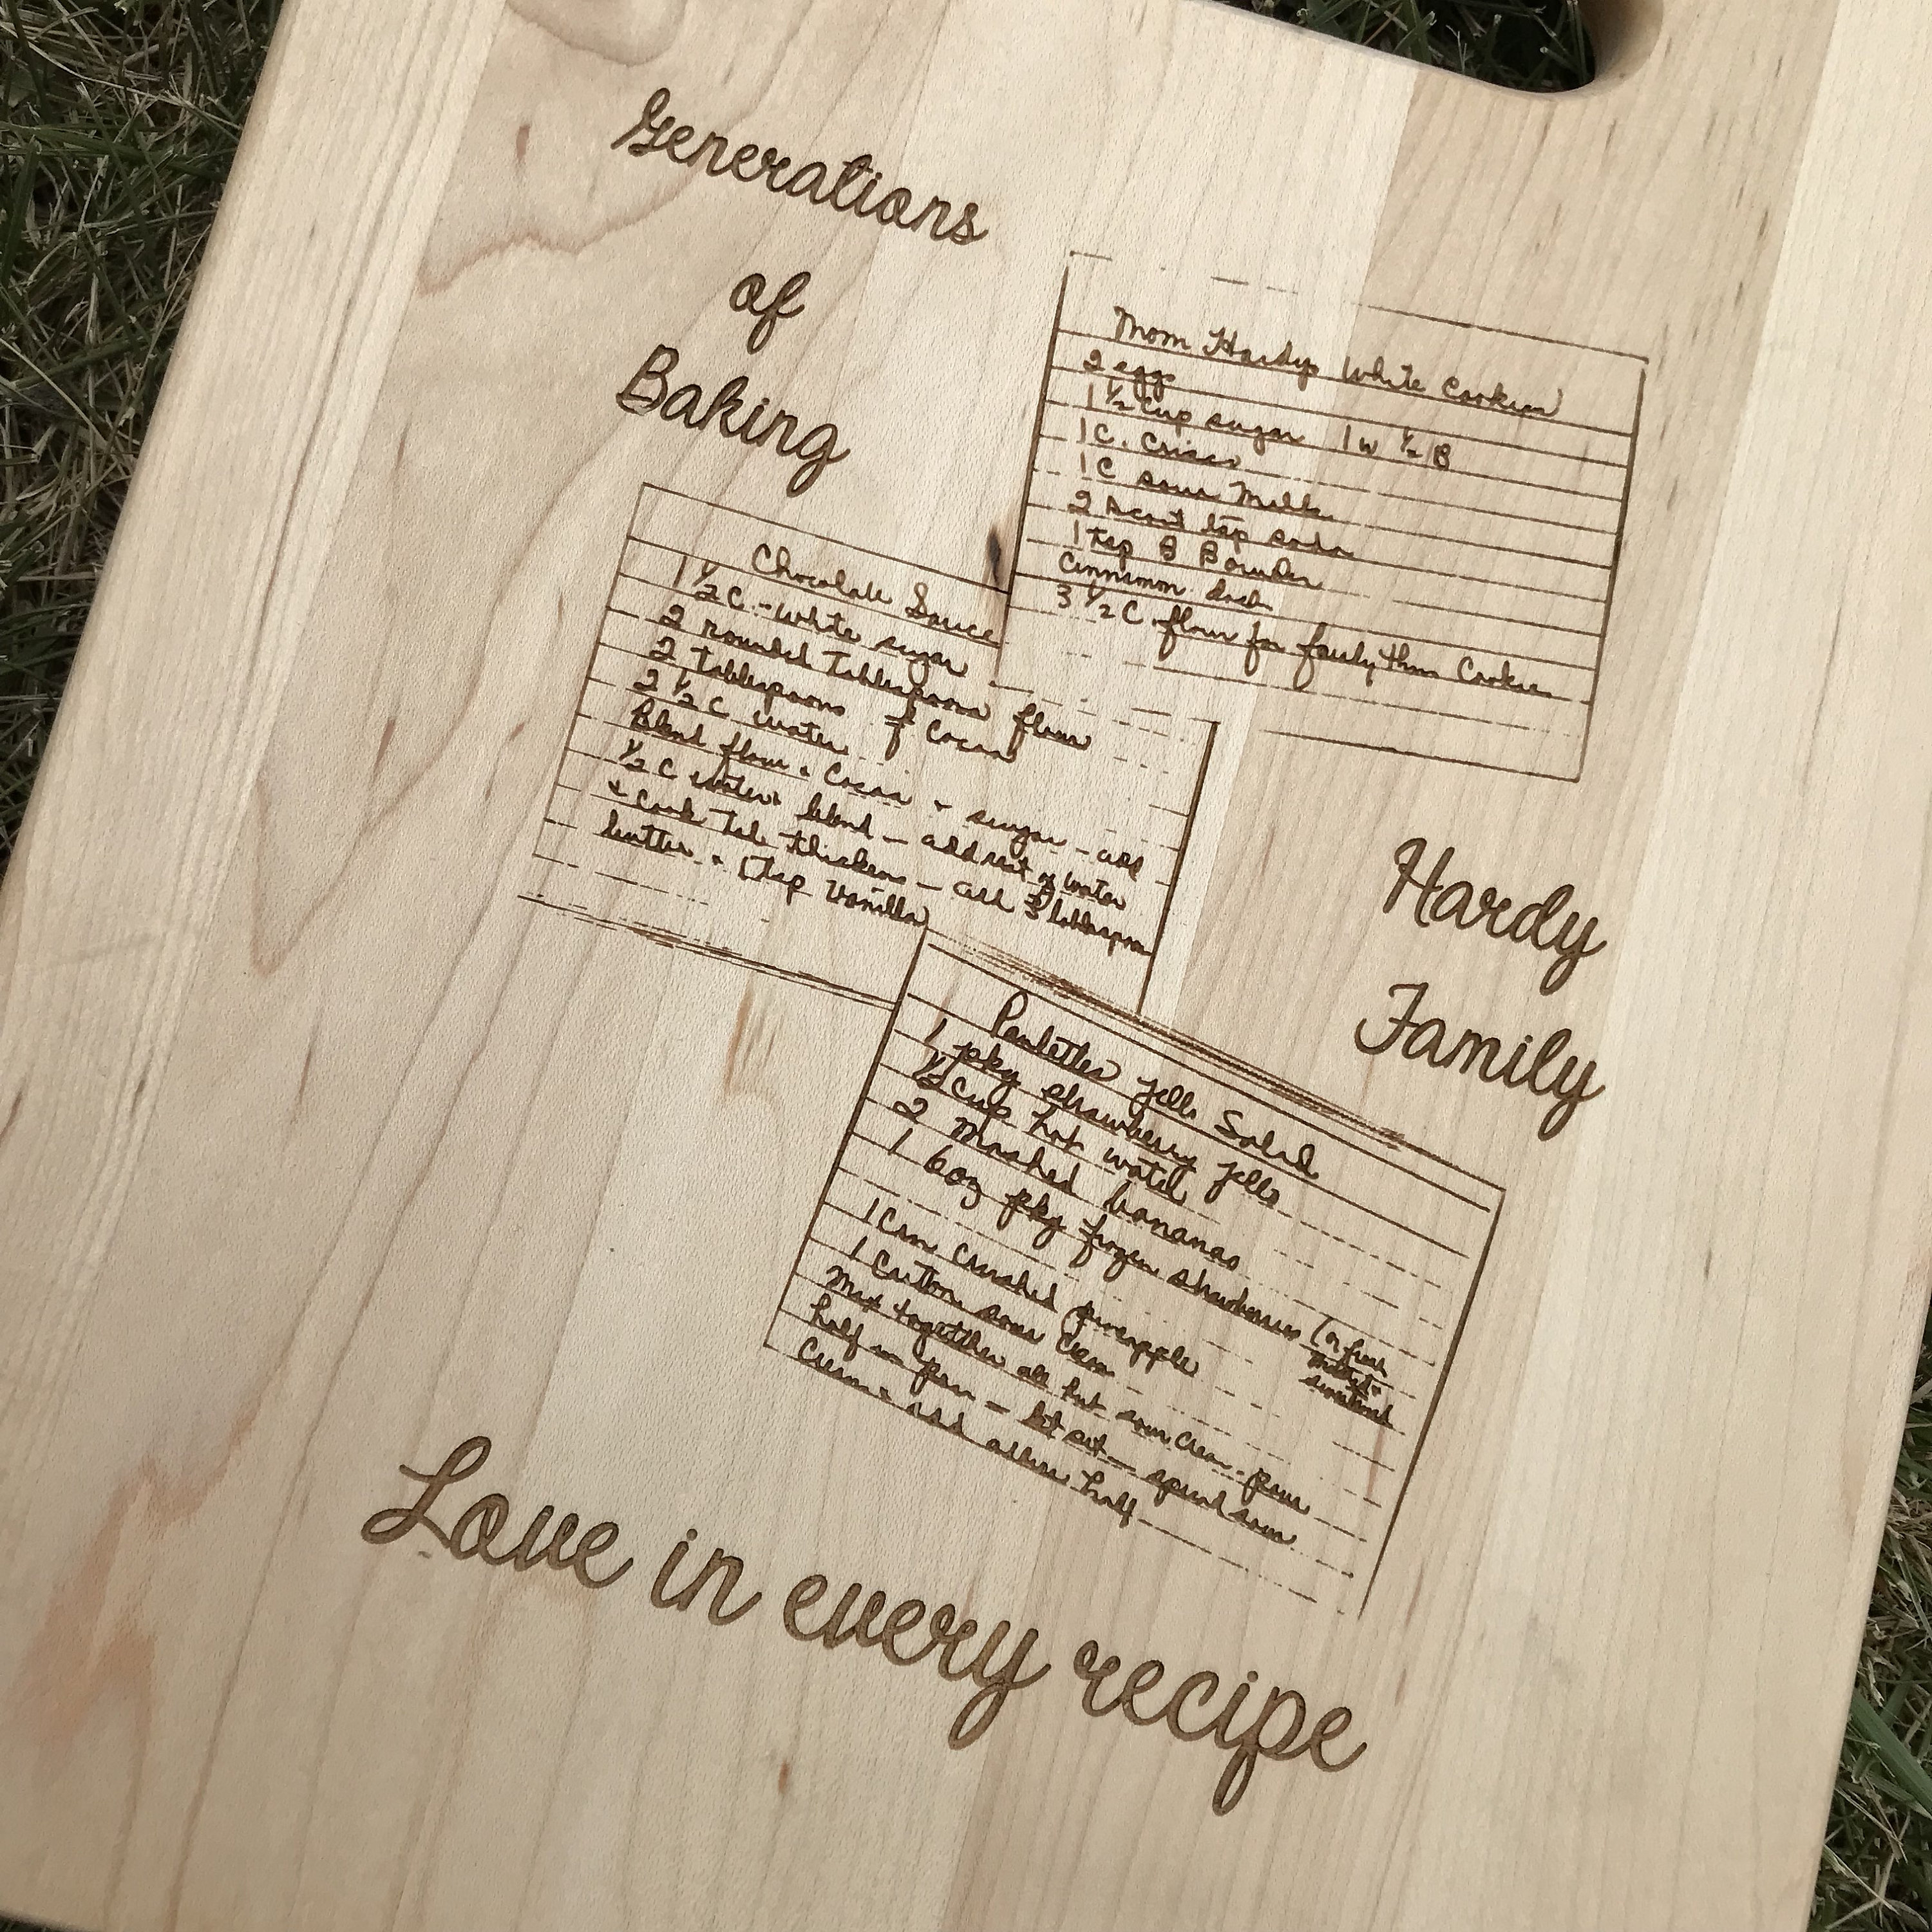 Generations
of
Baking
Mom Hardys White Cookies
2 eggs
1 1/2 cup sugar 1 w 1/2 B
1 C. Crisco
1 C sour Milk
2 scant tsp soda
1 tsp B Powder
Cinnimon dash
3 1/2 C flour for fairly thin Cookies
Chocolate Sauce
1 1/2 C - white sugar
2 rounded Tablespoons flour
2 tablespoons of Cocoa
2 1/2 C water
Blend flour & Cocoa & sugar - add
1/2 C water blend - add rest of water
& Cook Til thickens - add 3 tablespoon
butter & 1 tsp Vanilla
Hardy
Family
Paulettes Jello Salad
1 pkg strawberry jello
1/2 Cup hot water
2 Mashed bananas
1 6oz pkg frozen strawberries (or fresh
mashed &
sweetened
1 Can crushed pineapple
1 Carton sour Cream
Mix together all but sour Cream - pour
half in pan - let set - spread sour
Cream & add other half
Love in every recipe